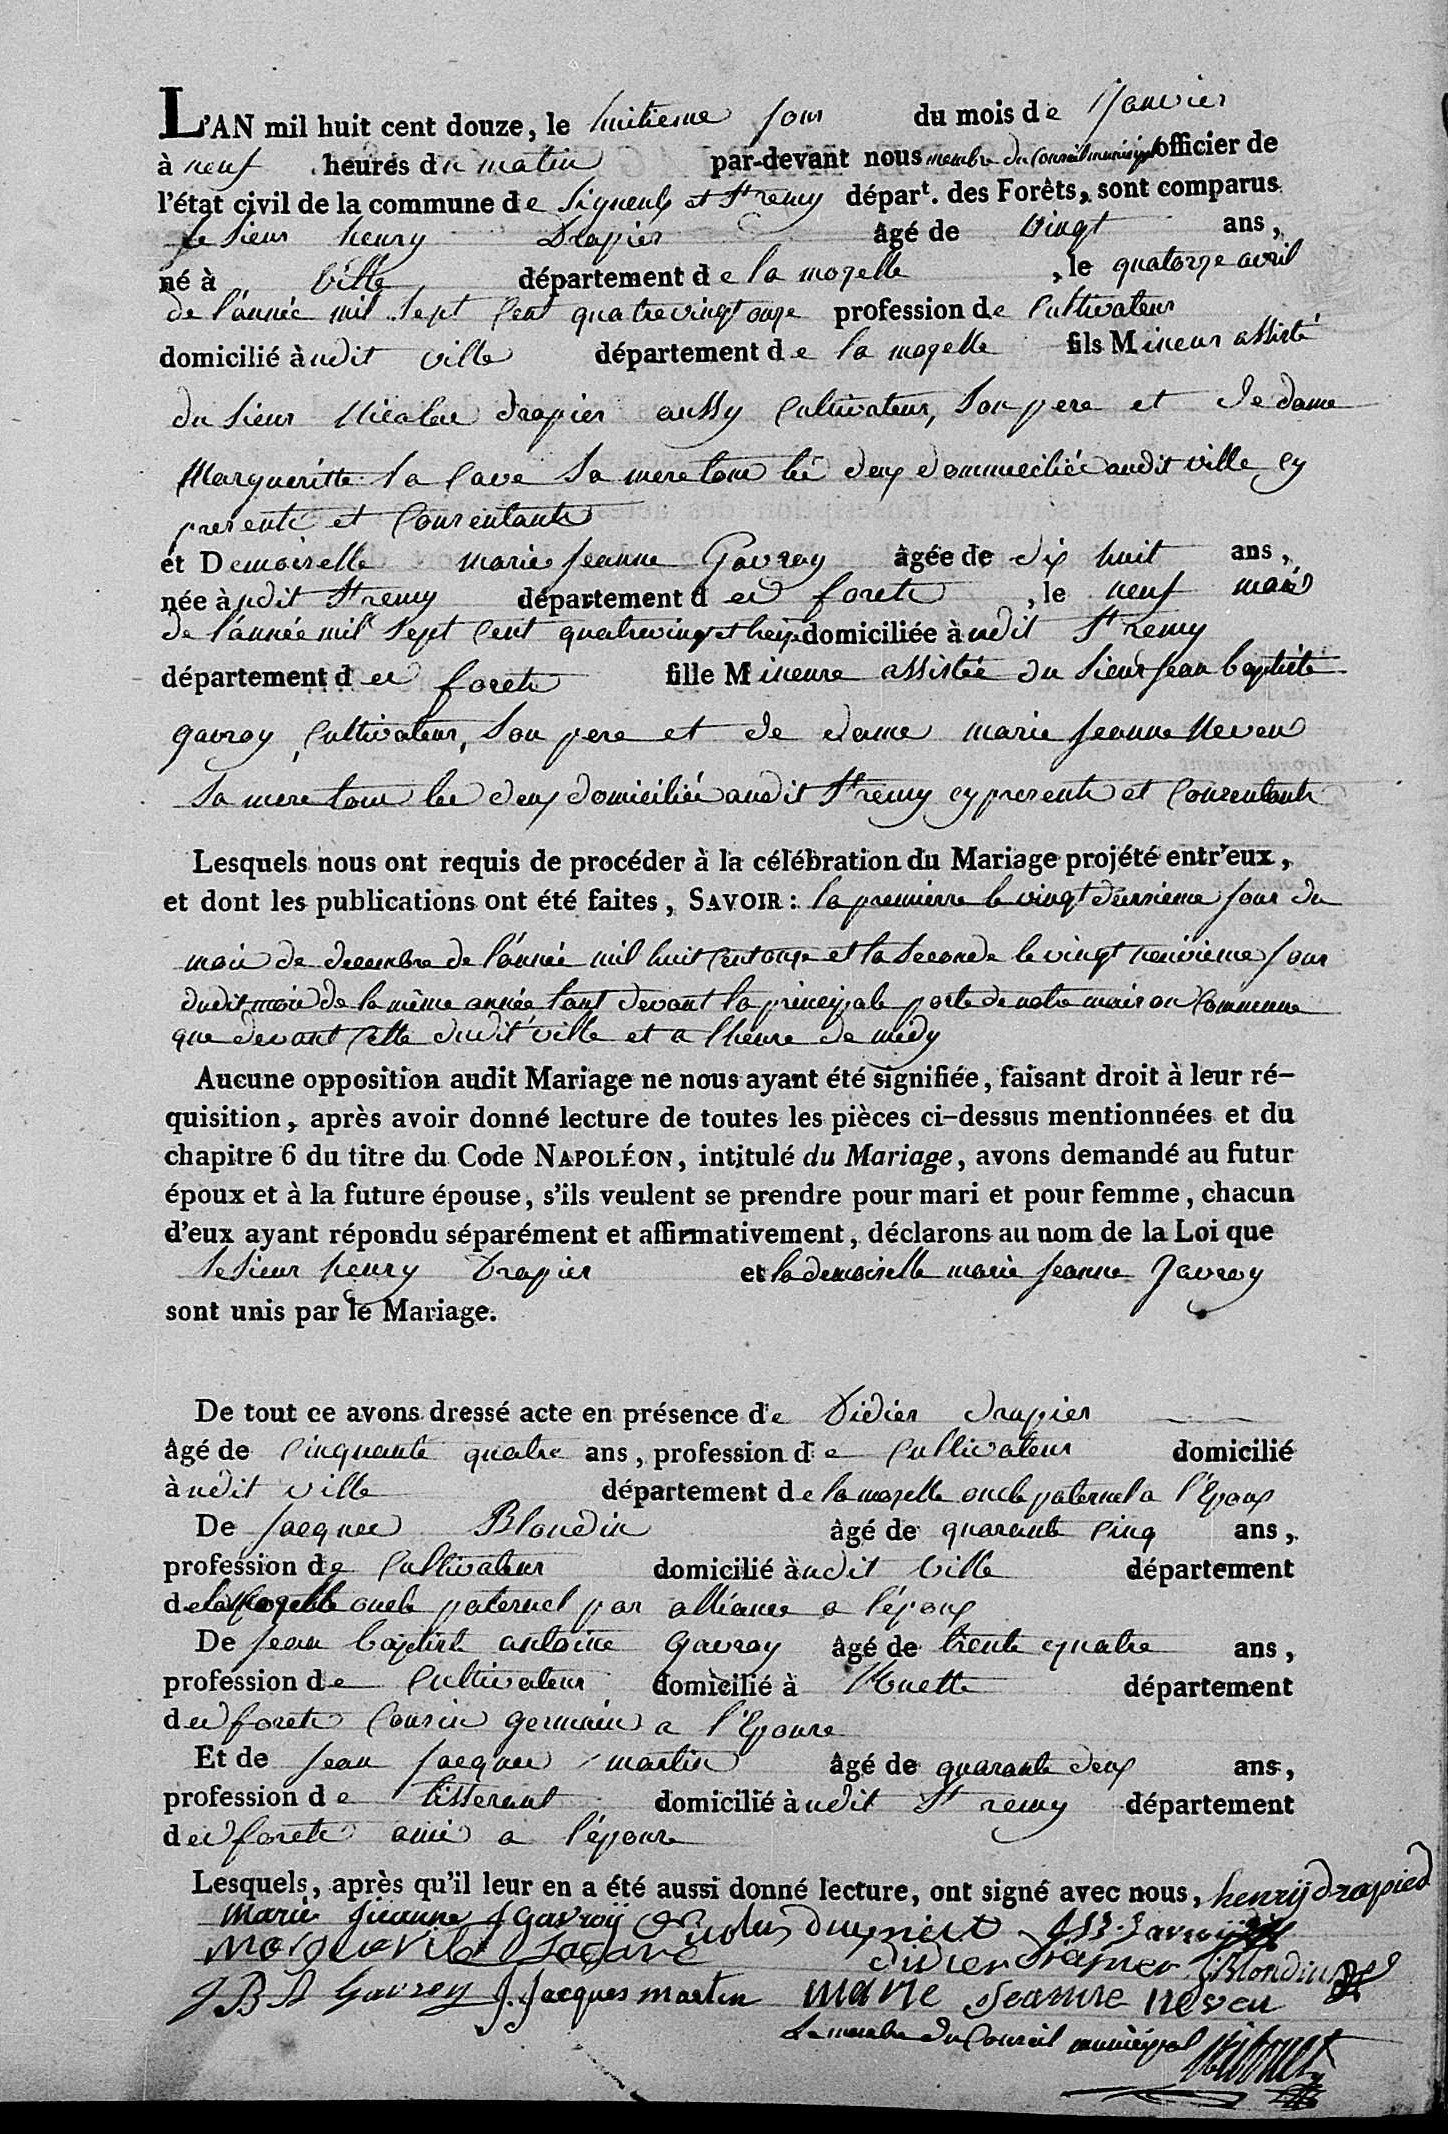 L'AN mil huit cent douze, le huitieme jour du mois de janvier
à neuf heures du matin par-devant nous membre du Conseil municipal officier de
l'état civil de la commune de Signeulx et St remy départ. des Forêts, sont comparus
le sieur henry Drapier âgé de vingt ans,
né à Ville département de la mozelle, le quatorze avril
de l'année mil sept Cent quatrevingt onze profession de Cultivateur
domicilié àudit ville département de la mozelle fils Mineur assisté
du sieur Nicolas drapier aussy Cultivateur, son pere et de dame
Margueritte la Cave sa mere tous les deux dommiciliés audit ville cy
presents et Consentants
et Demoiselle marie jeanne Gavroy âgée de dix huit ans,
née àudit St remy département des forets, le neuf mars
de l'année mil sept Cent quatrevingt treize domiciliée àudit St remy
département des forets fille Mineure assistée du sieur jean baptiste
gavroy Cultivateur, son pere et de dame marie jeanne Neveu
sa mere tous les deux domiciliés audit St remy cy presents et Consentants
Lesquels nous ont requis de procéder à la célébration du Mariage projété entr'eux,
et dont les publications ont été faites, SAVOIR : la premierre le vingt deuxieme jour du
mois de decembre de l'année mil huit Cent onze et la seconde le vingt neuvieme jour
dudit mois de la même année tant devant la principale porte de notre maison Commune
que devant Celle dudit ville et a l'heure de midy
Aucune opposition audit Mariage ne nous ayant été signifiée, faisant droit à leur ré-
quisition, après avoir donné lecture de toutes les pièces ci-dessus mentionnées et du
chapitre 6 du titre du Code NAPOLÉON, intitulé du Mariage, avons demandé au futur
époux et à la future épouse, s'ils veulent se prendre pour mari et pour femme, chacun
d'eux ayant répondu séparément et affirmativement, déclarons au nom de la Loi que
le sieur henry Drapier et la demoiselle marie jeanne Gavroy
sont unis par le Mariage.
De tout ce avons dressé acte en présence de Didier drapier
âgé de Cinquante quatre ans, profession de Cultivateur domicilié
àudit ville département de la mozelle oncle paternel a l'Epoux
De jacques Blondin âgé de quarante Cinq ans,
profession de Cultivateur domicilié àudit Ville département
de la Mozelle oncle paternel par alliance a l'époux
De jean baptiste antoine gavroy âgé de trente quatre ans,
profession de Cultivateur domicilié à département
des forets Cousin germain a l'Epouse
Et de jean jacques martin âgé de quarante deux ans,
profession de tisserant domicilié àudit St remy département
des forets ami a l'épouse
Lesquels, après qu'il leur en a été aussi donné lecture, ont signé avec nous, henrij drapied
marie jeanne Gavroÿ
didier Blondin
J B A Gavroy J. Jacques martin marie Jeanne neveu
Le membre du Conseil municipal